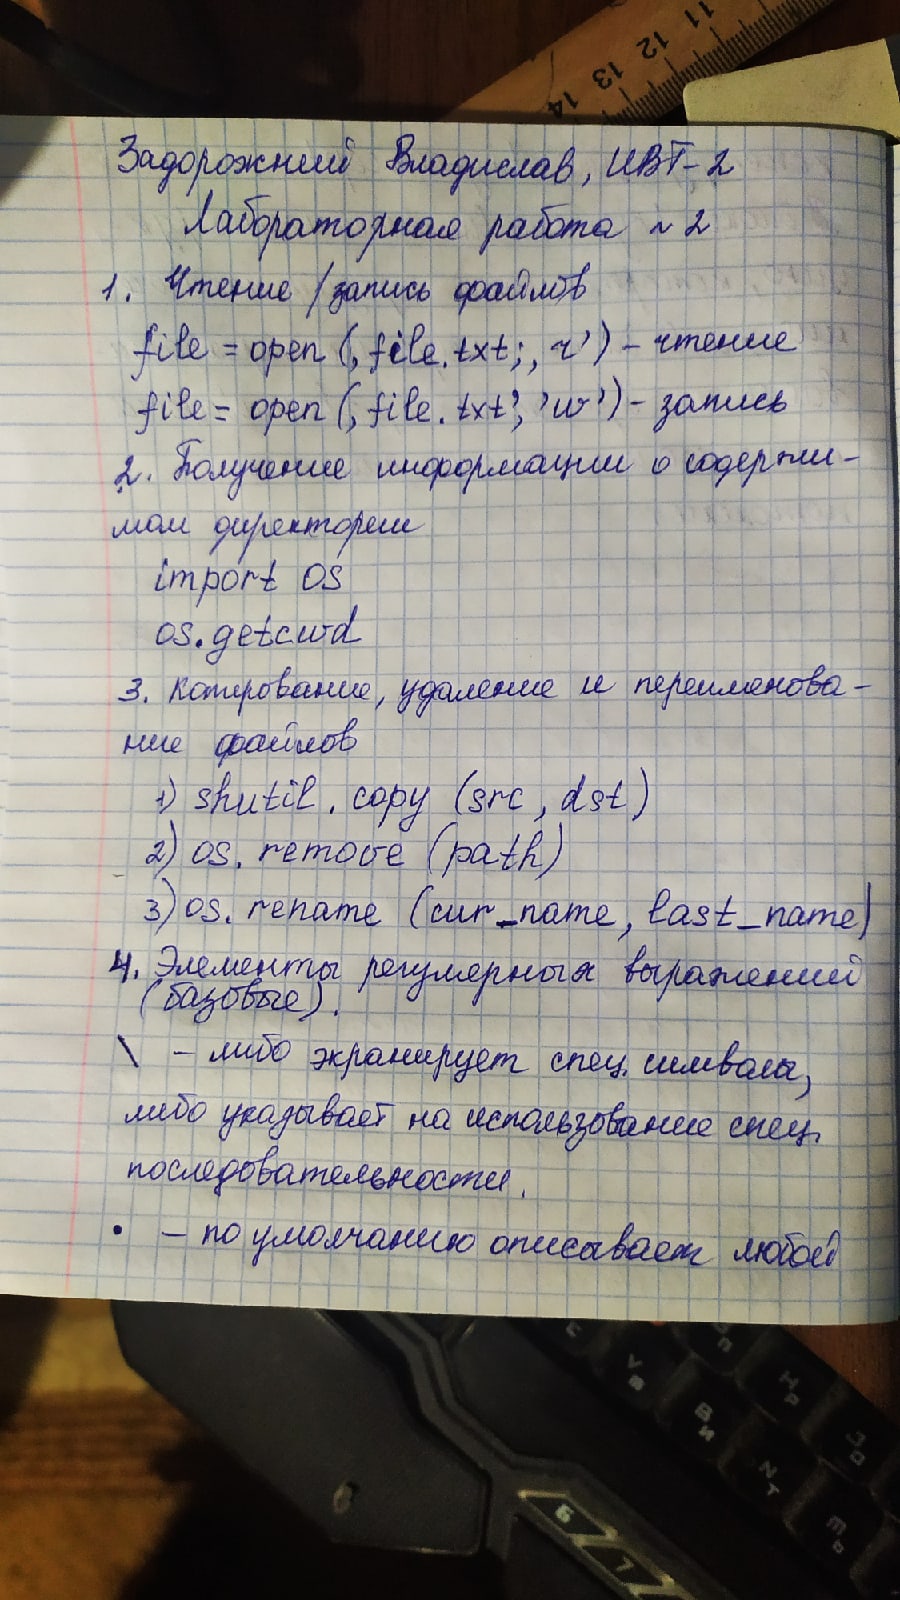 11
12
13
14
Задорожний Владислав, ИВТ-2
Лабораторная работа №2
1. Чтение/запись файлов
file = open (,file.txt;,r') - чтение
file = open (,file.txt', 'w') - запись
2. Получение информации о содержи-
мом директории
import os
os.getcwd
3. Копирование, удаление и переименова-
ние файлов
1) shutil.copy (src, dst)
2) os.remove (path)
3) os.rename (cur_name, last_name)
4. Элементы регулярных выражений
(базовые).
\ - либо экранирует спец. символы,
либо указывает на использование спец.
последовательности.
. - по умолчанию описывает любой
6
7